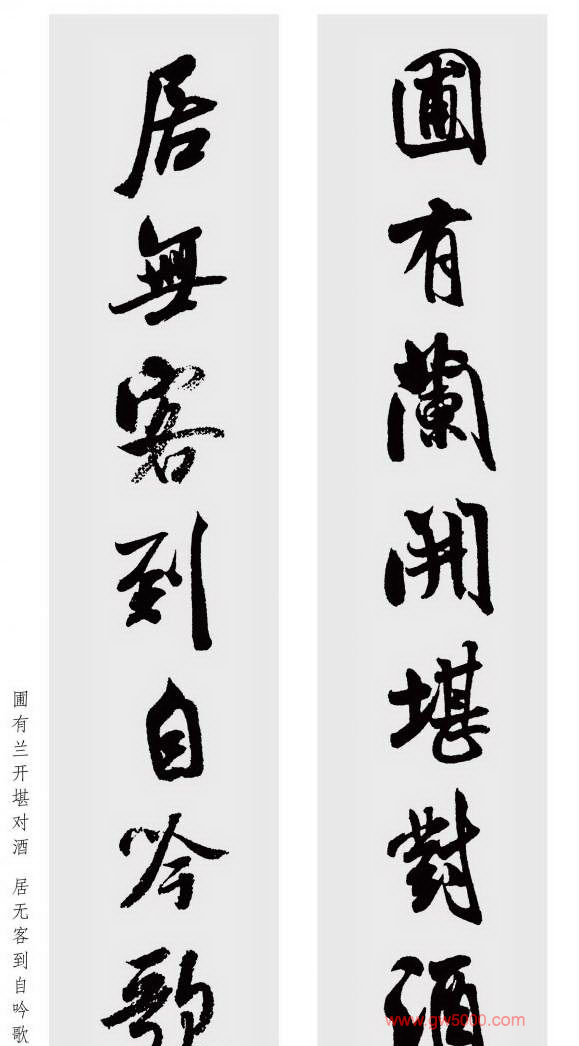 圃有蘭開堪對酒
居無客到自吟歌
圃有兰开堪对酒 居无客到自吟歌
www.gw5000.com